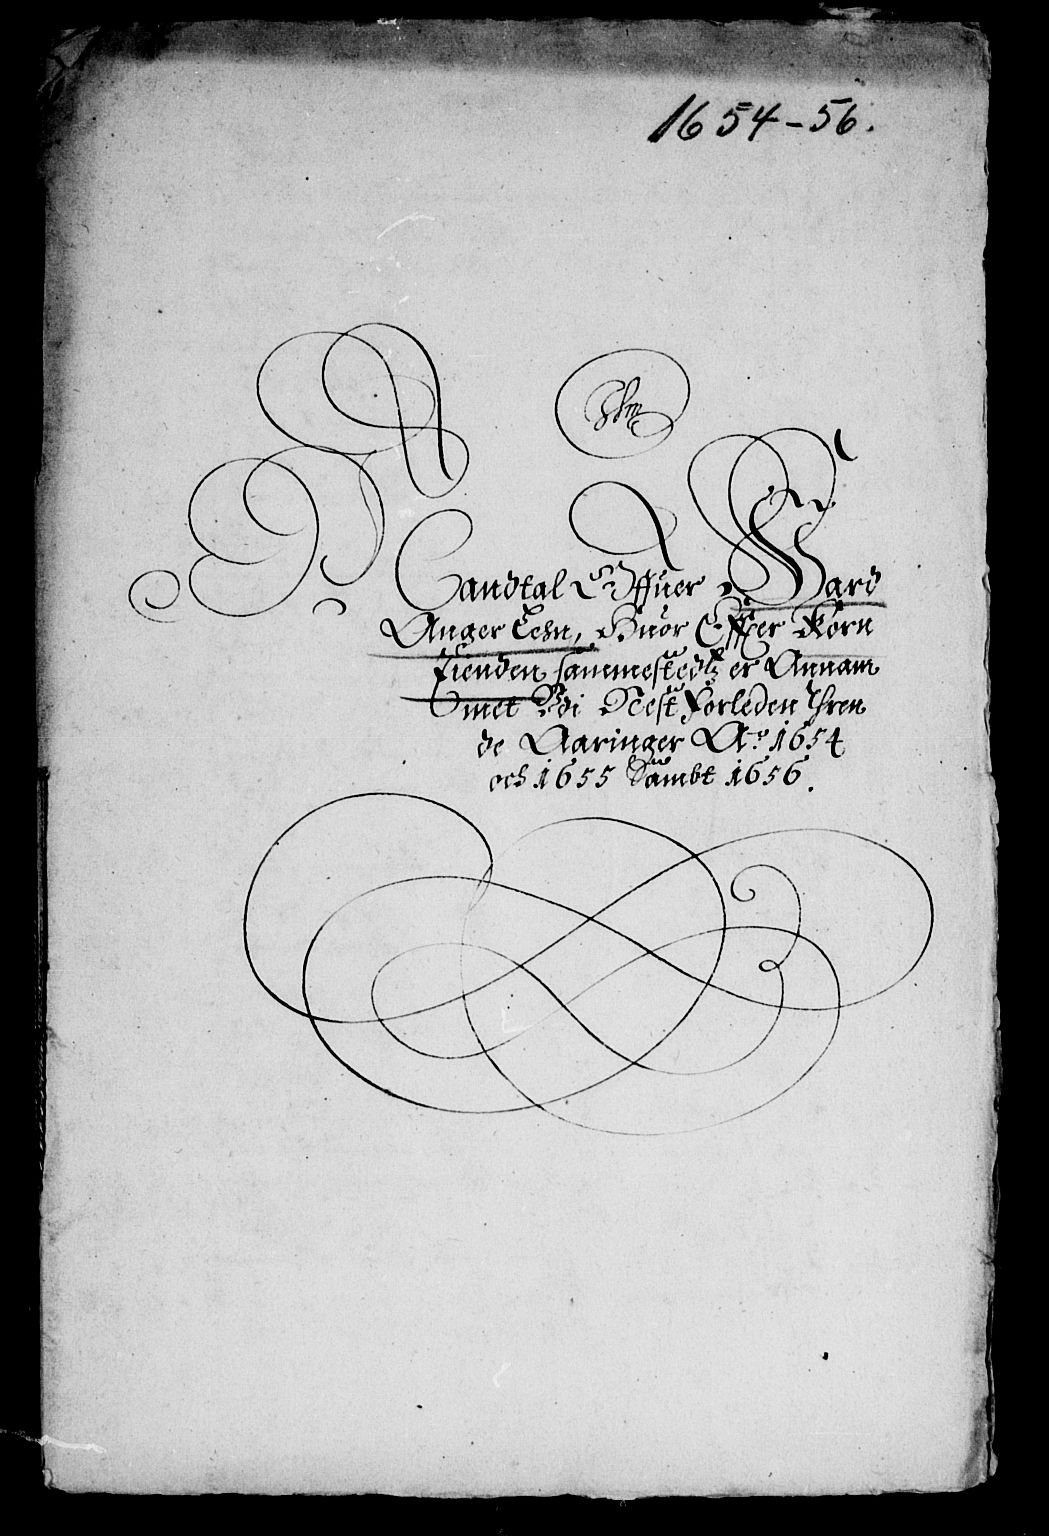 1654-56.
Ihm
Mandtal Offuer Hard
Anger Lehn, Huor Effter Korn
Tienden sammestedtz er Annam
met Udi Nest Forleden Thren
de Aaringer Ao. 1654
och 1655 Sambt 1656.